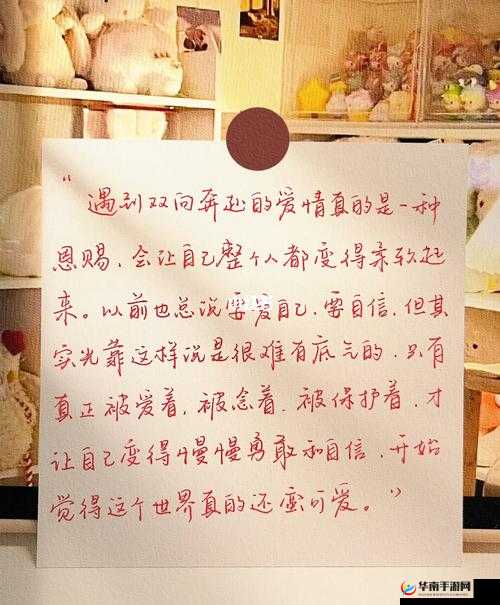 “遇到双向奔赴的爱情真的是一种
恩赐，会让自己整个人都变得柔软起
来。以前也总说要爱自己，要自信，但其
实光靠这样说是很难有底气的，只有
真正被爱着，被念着，被保护着，才
让自己变得慢慢勇敢和自信，开始
觉得这个世界真的还蛮可爱。”
华南手游网